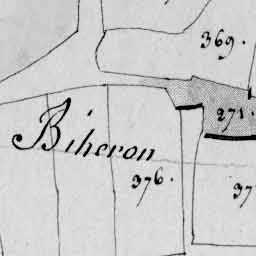 369.
271.
Biheron
376.
37